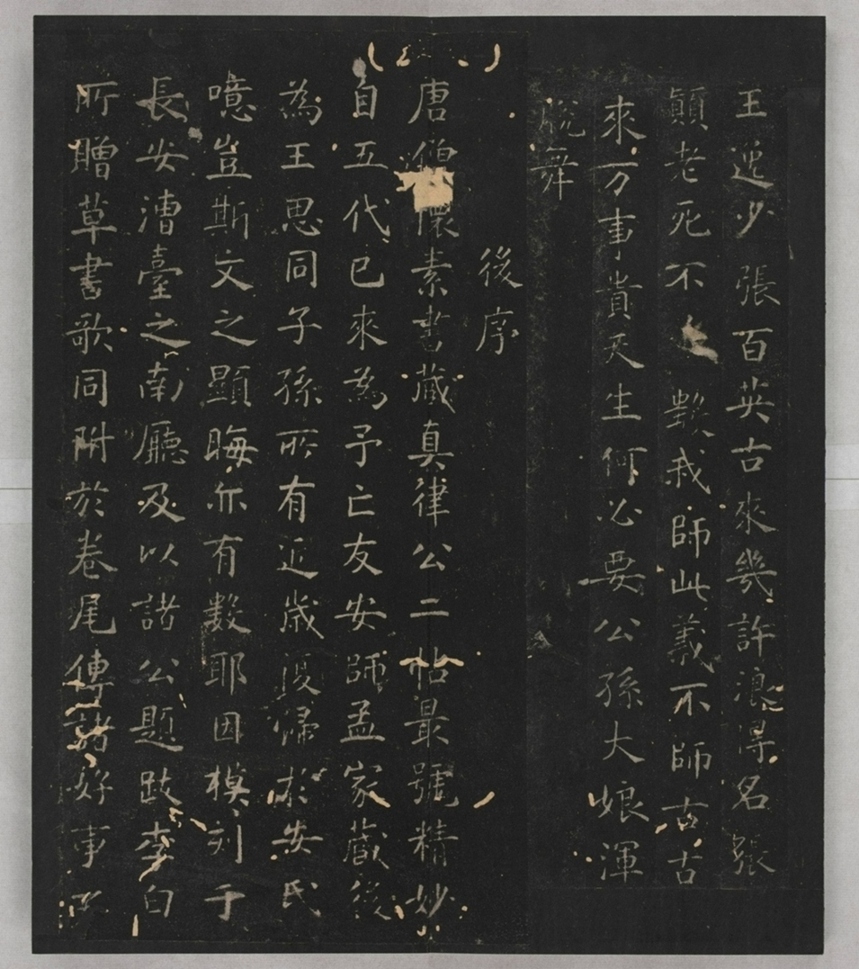 王逸少張百英古來幾許浪得名張
顛老死不數我師此義不師古古
來万事貴天生何必要公孫大娘渾
脫舞
後序
唐僧懷素書藏真律公二帖最號精妙
自五代已來為予亡友安師孟家藏後
為王思同子孫所有近歲復歸於安氏
噫豈斯文之顯晦亦有数耶因模刻于
長安漕臺之南廳及以諸公題跋李白
所贈草書歌同附於卷尾傳諸好事